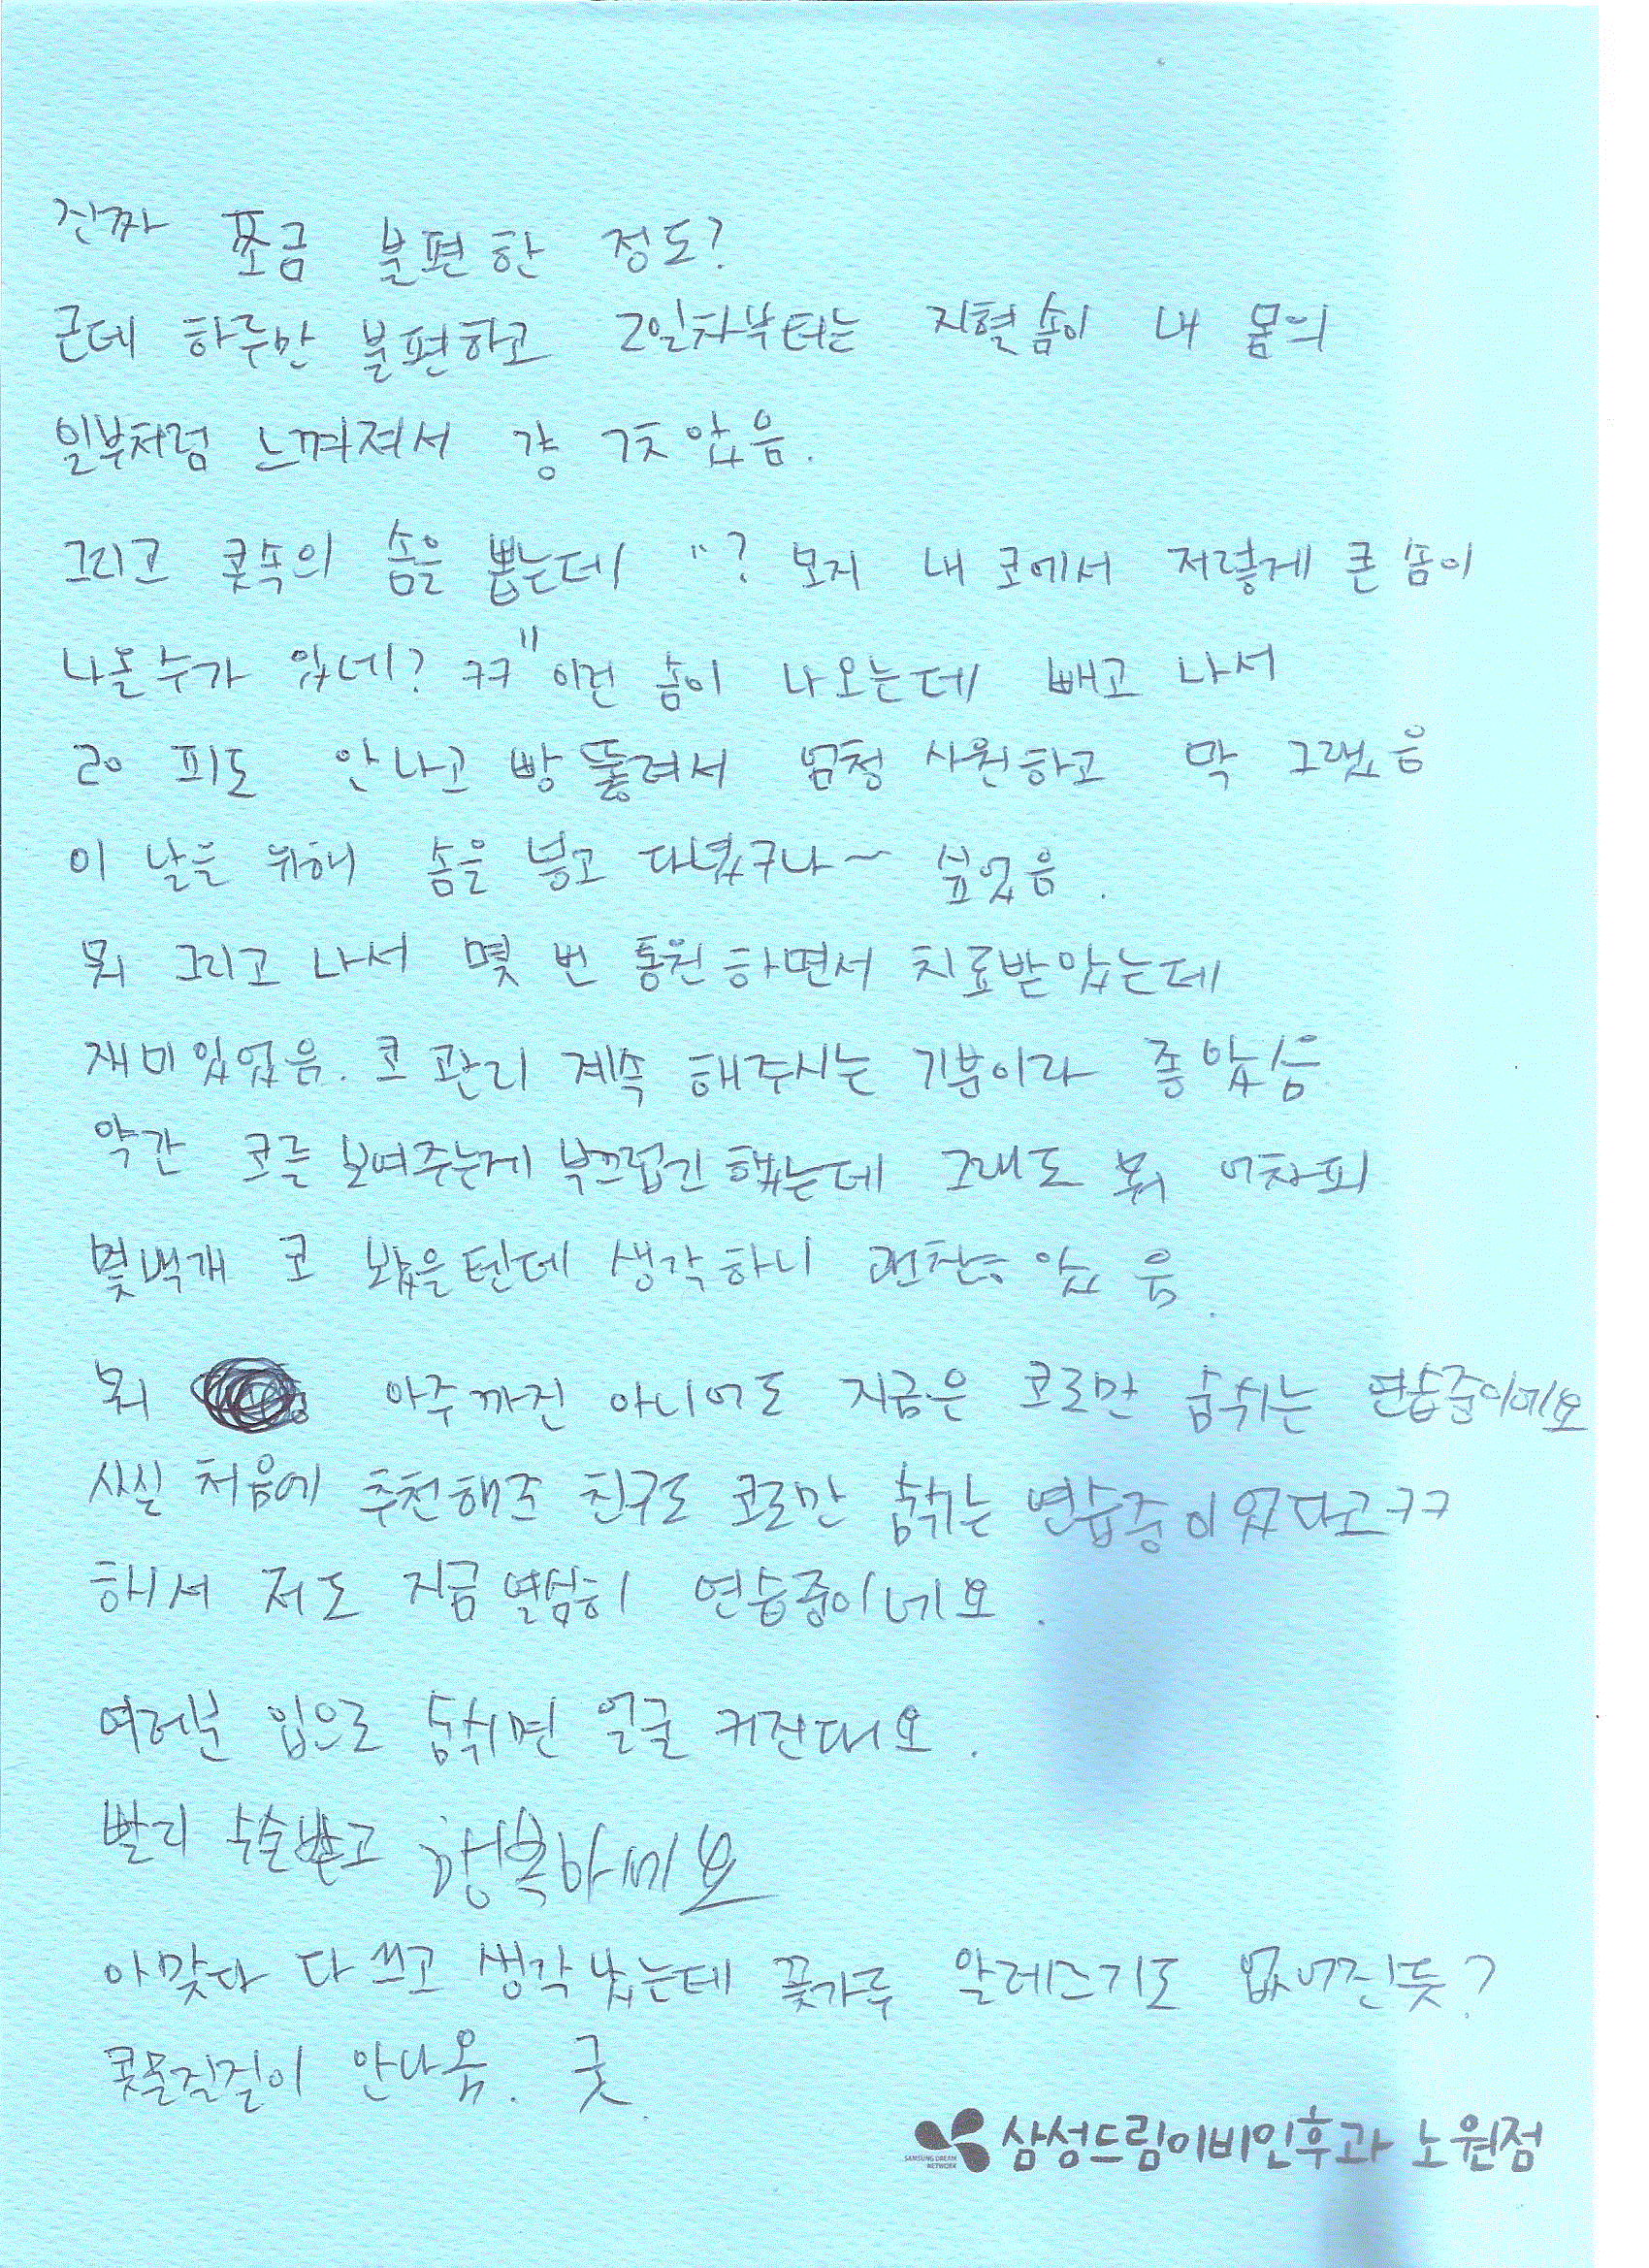 진짜 쪼금 불편한 정도?
근데 하루만 불편하고 2일차부터는 지혈솜이 내 몸의
일부처럼 느껴져서 걍 괜찮았음.
그리고 콧속의 솜을 뽑는데 "? 모지 내 코에서 저렇게 큰 솜이
나올수가 있네? ㅋㅋ" 이런 솜이 나오는데 빼고 나서
피도 안나고 빵 뚫려서 엄청 시원하고 막 그랬음
이 날을 위해 솜을 넣고 다녔구나~ 싶었음.
뭐 그리고 나서 몇 번 통원하면서 치료받았는데
재미있었음. 코 관리 계속 해주시는 기분이라 좋았음
약간 코를 보여주는게 부끄럽긴 했는데 그래도 뭐 어차피
몇백개 코 봤을텐데 생각하니 괜찮았음.
뭐 아주까진 아니어도 지금은 코로만 숨쉬는 연습중이에요
사실 처음에 추천해준 친구도 코로만 숨쉬는 연습중이었다고ㅋㅋ
해서 저도 지금 열심히 연습중이네요.
여러분 입으로 숨쉬면 얼굴 커진대요.
빨리 수술받고 행복하세요
아맞다 다 쓰고 생각났는데 꽃가루 알레르기도 없어진듯?
콧물질질이 안나옴. 굿.
SAMSUNG DREAM NETWORK 삼성드림이비인후과 노원점